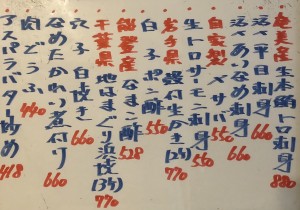 奄美産 生本鮪トロ刺身 880
活〆平目刺身
活〆ありなみ刺身
自家製 〆サバ 550
生トロサーモン刺身 550
岩手県 殻付生かき(2ケ) 770
白子ポン酢 550
能登産 なまこ酢 528
千葉県 地はまぐり浜焼(3ケ) 770
穴子白焼き 660
なめたかれい煮付け 660
肉どうふ 440
アスパラバター炒め 418